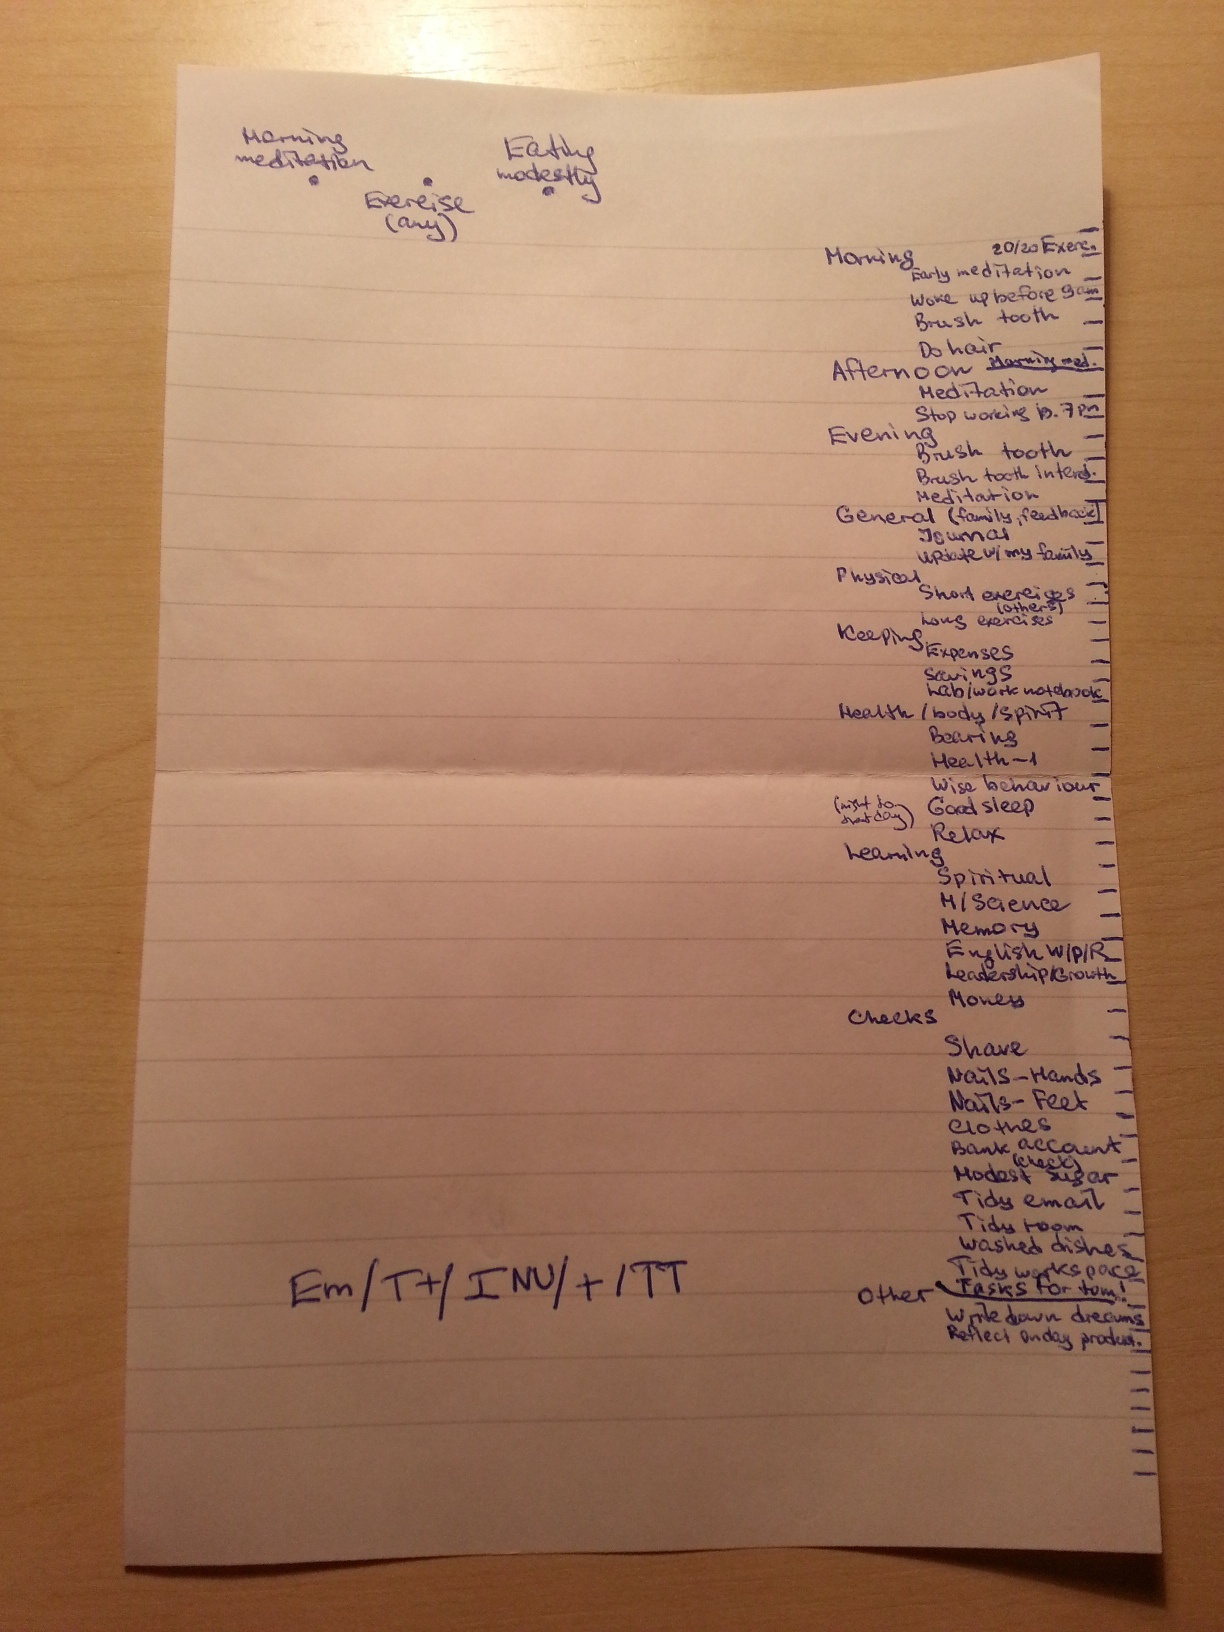 Morning
meditation
Exercise
(any)
Eating
modestly
Morning 20/20 Exerc.
Early meditation
Woke up before 9am
Brush tooth
Do hair
Afternoon Morning med.
Meditation
Stop working b. 7pm
Evening
Brush tooth
Brush tooth interd.
Meditation
General (family, feedback)
Journal
Update w/ my family
Physical
Short exercises
(others)
Long exercises
Keeping
Expenses
Savings
Lab/work notebook
Health / body / spirit
Bearing
Health-1
Wise behaviour
(night to
that day) Good sleep
Relax
Learning
Spiritual
M/Science
Memory
English W/P/R
Leadership/Growth
Money
Checks
Shave
Nails-Hands
Nails-Feet
Clothes
Bank account
(check)
Modest sugar
Tidy email
Tidy room
Washed dishes
Tidy workspace
Other Tasks for tom!
Write down dreams
Reflect on day product.
Em/T+/INU/+/TT